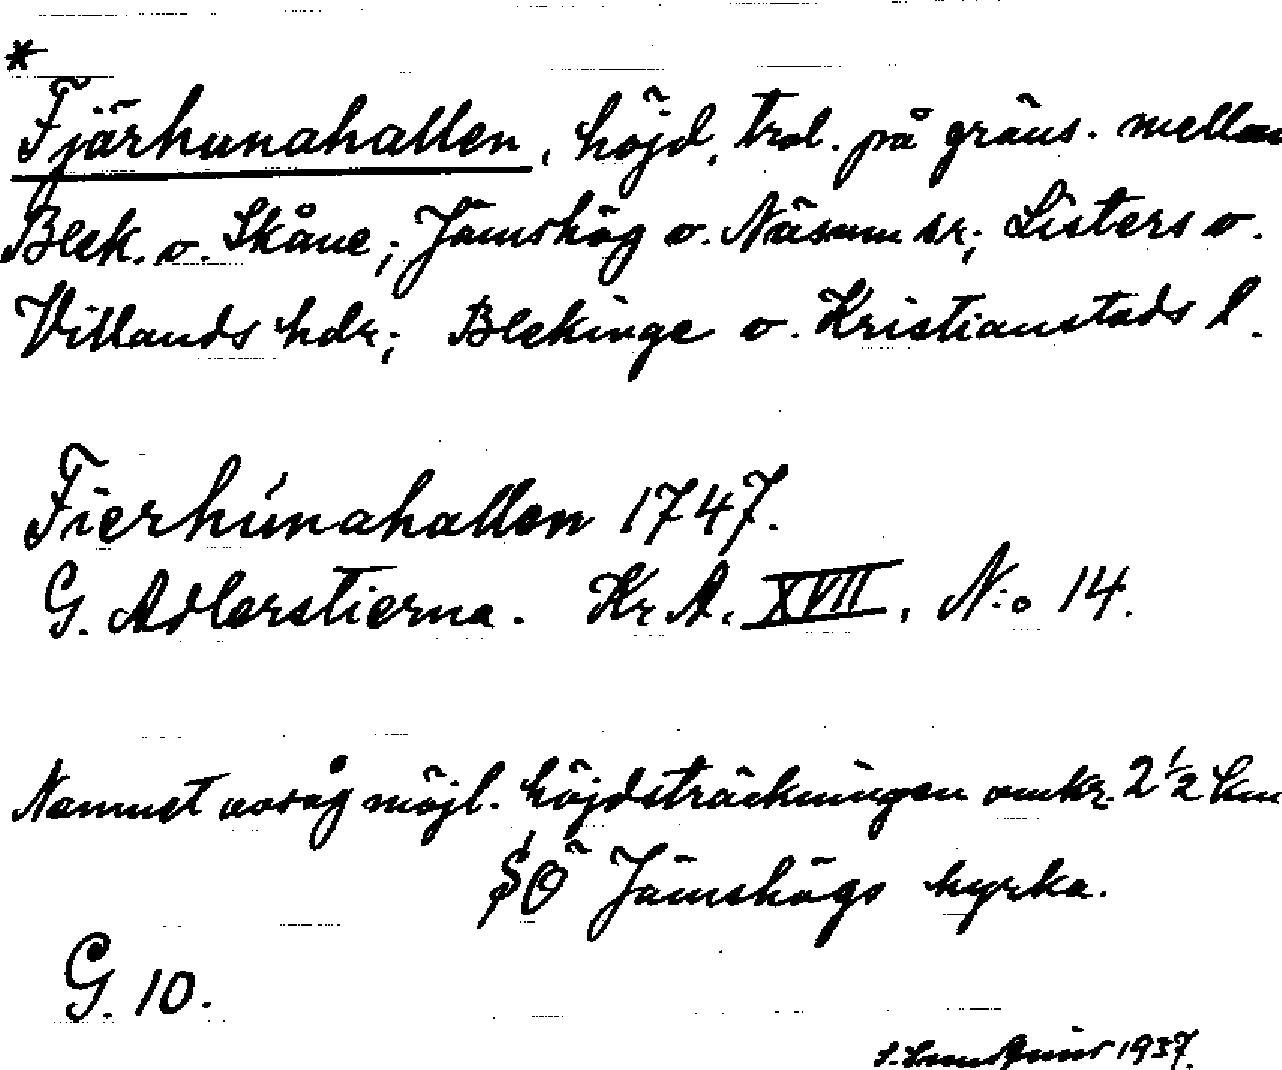 *
Fjärhunahallen, höjd, trol. på gräns. mellan
Blek. o. Skåne; Jämshög o. Näsum sr; Listers o.
Villands hdr; Blekinge o. Kristianstads l.
Fierhúnahallen 1747.
G. Adlerstierna. Kr. A. XVII, N:o 14.
Namnet avsåg möjl. höjdsträckningen omkr. 2 1/2 km
Jämshögs kyrka.
G. 10.
1937.